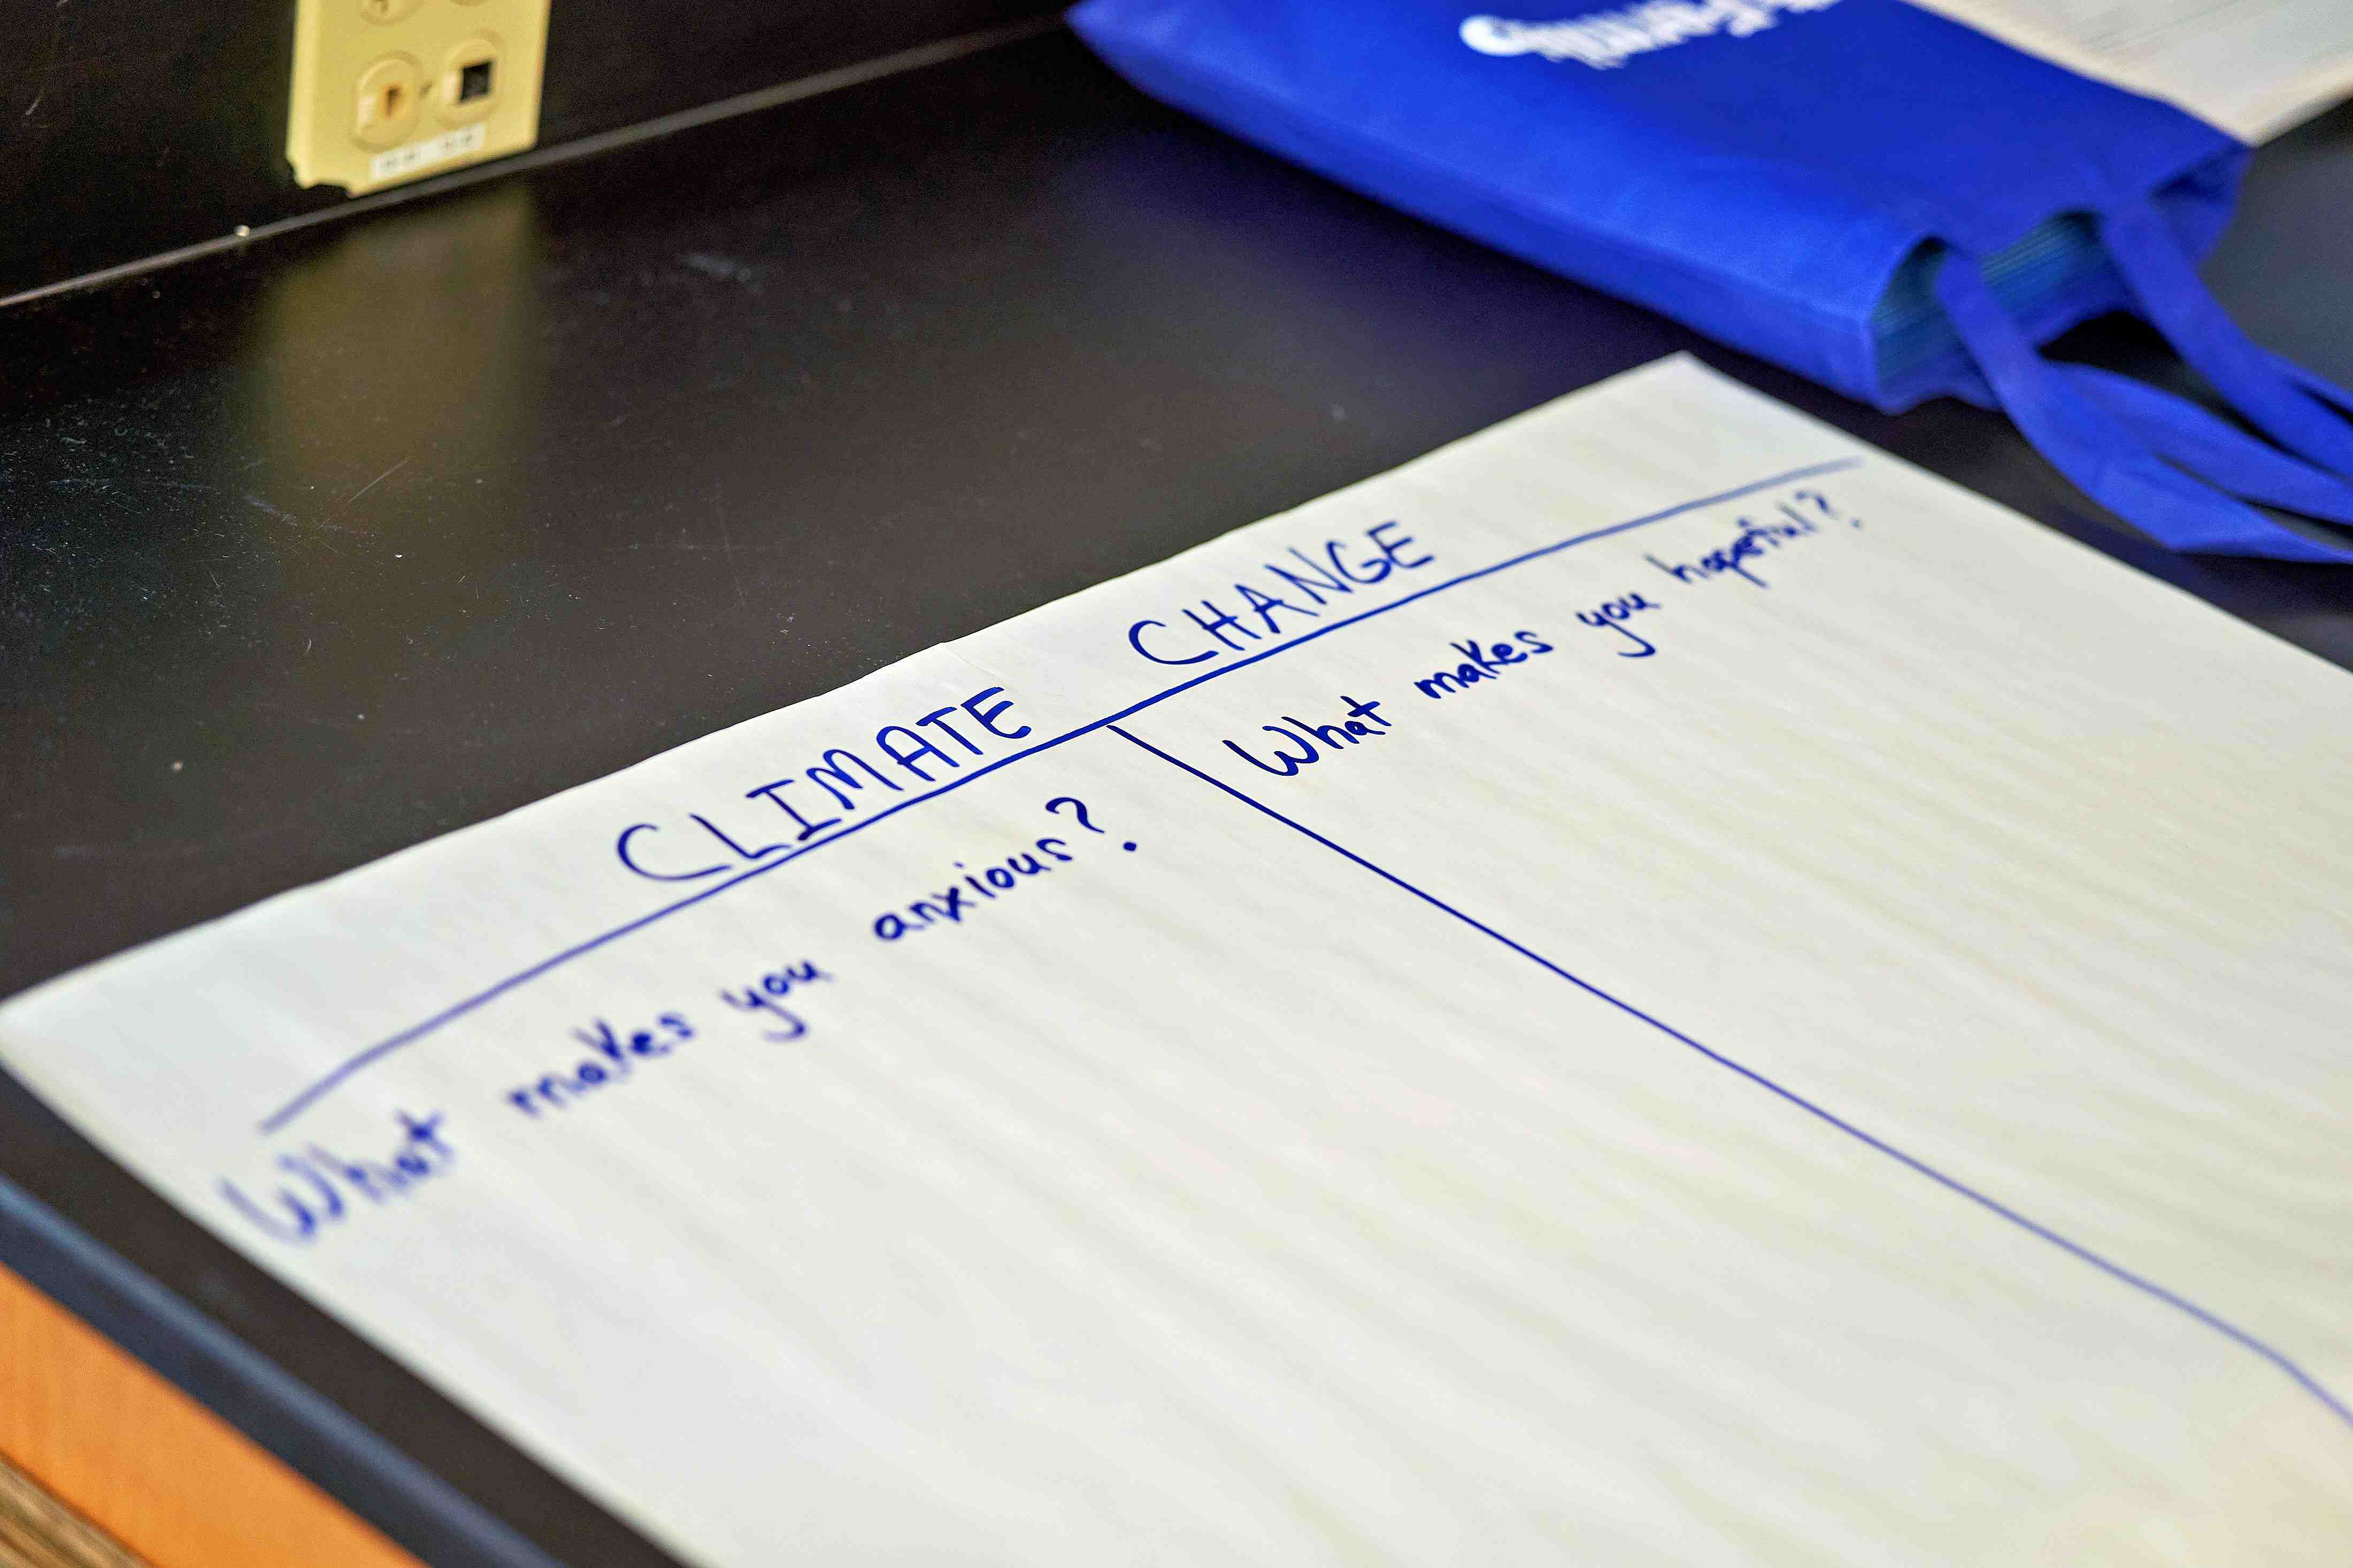 CLIMATE CHANGE
What makes you anxious?
What makes you hopeful?